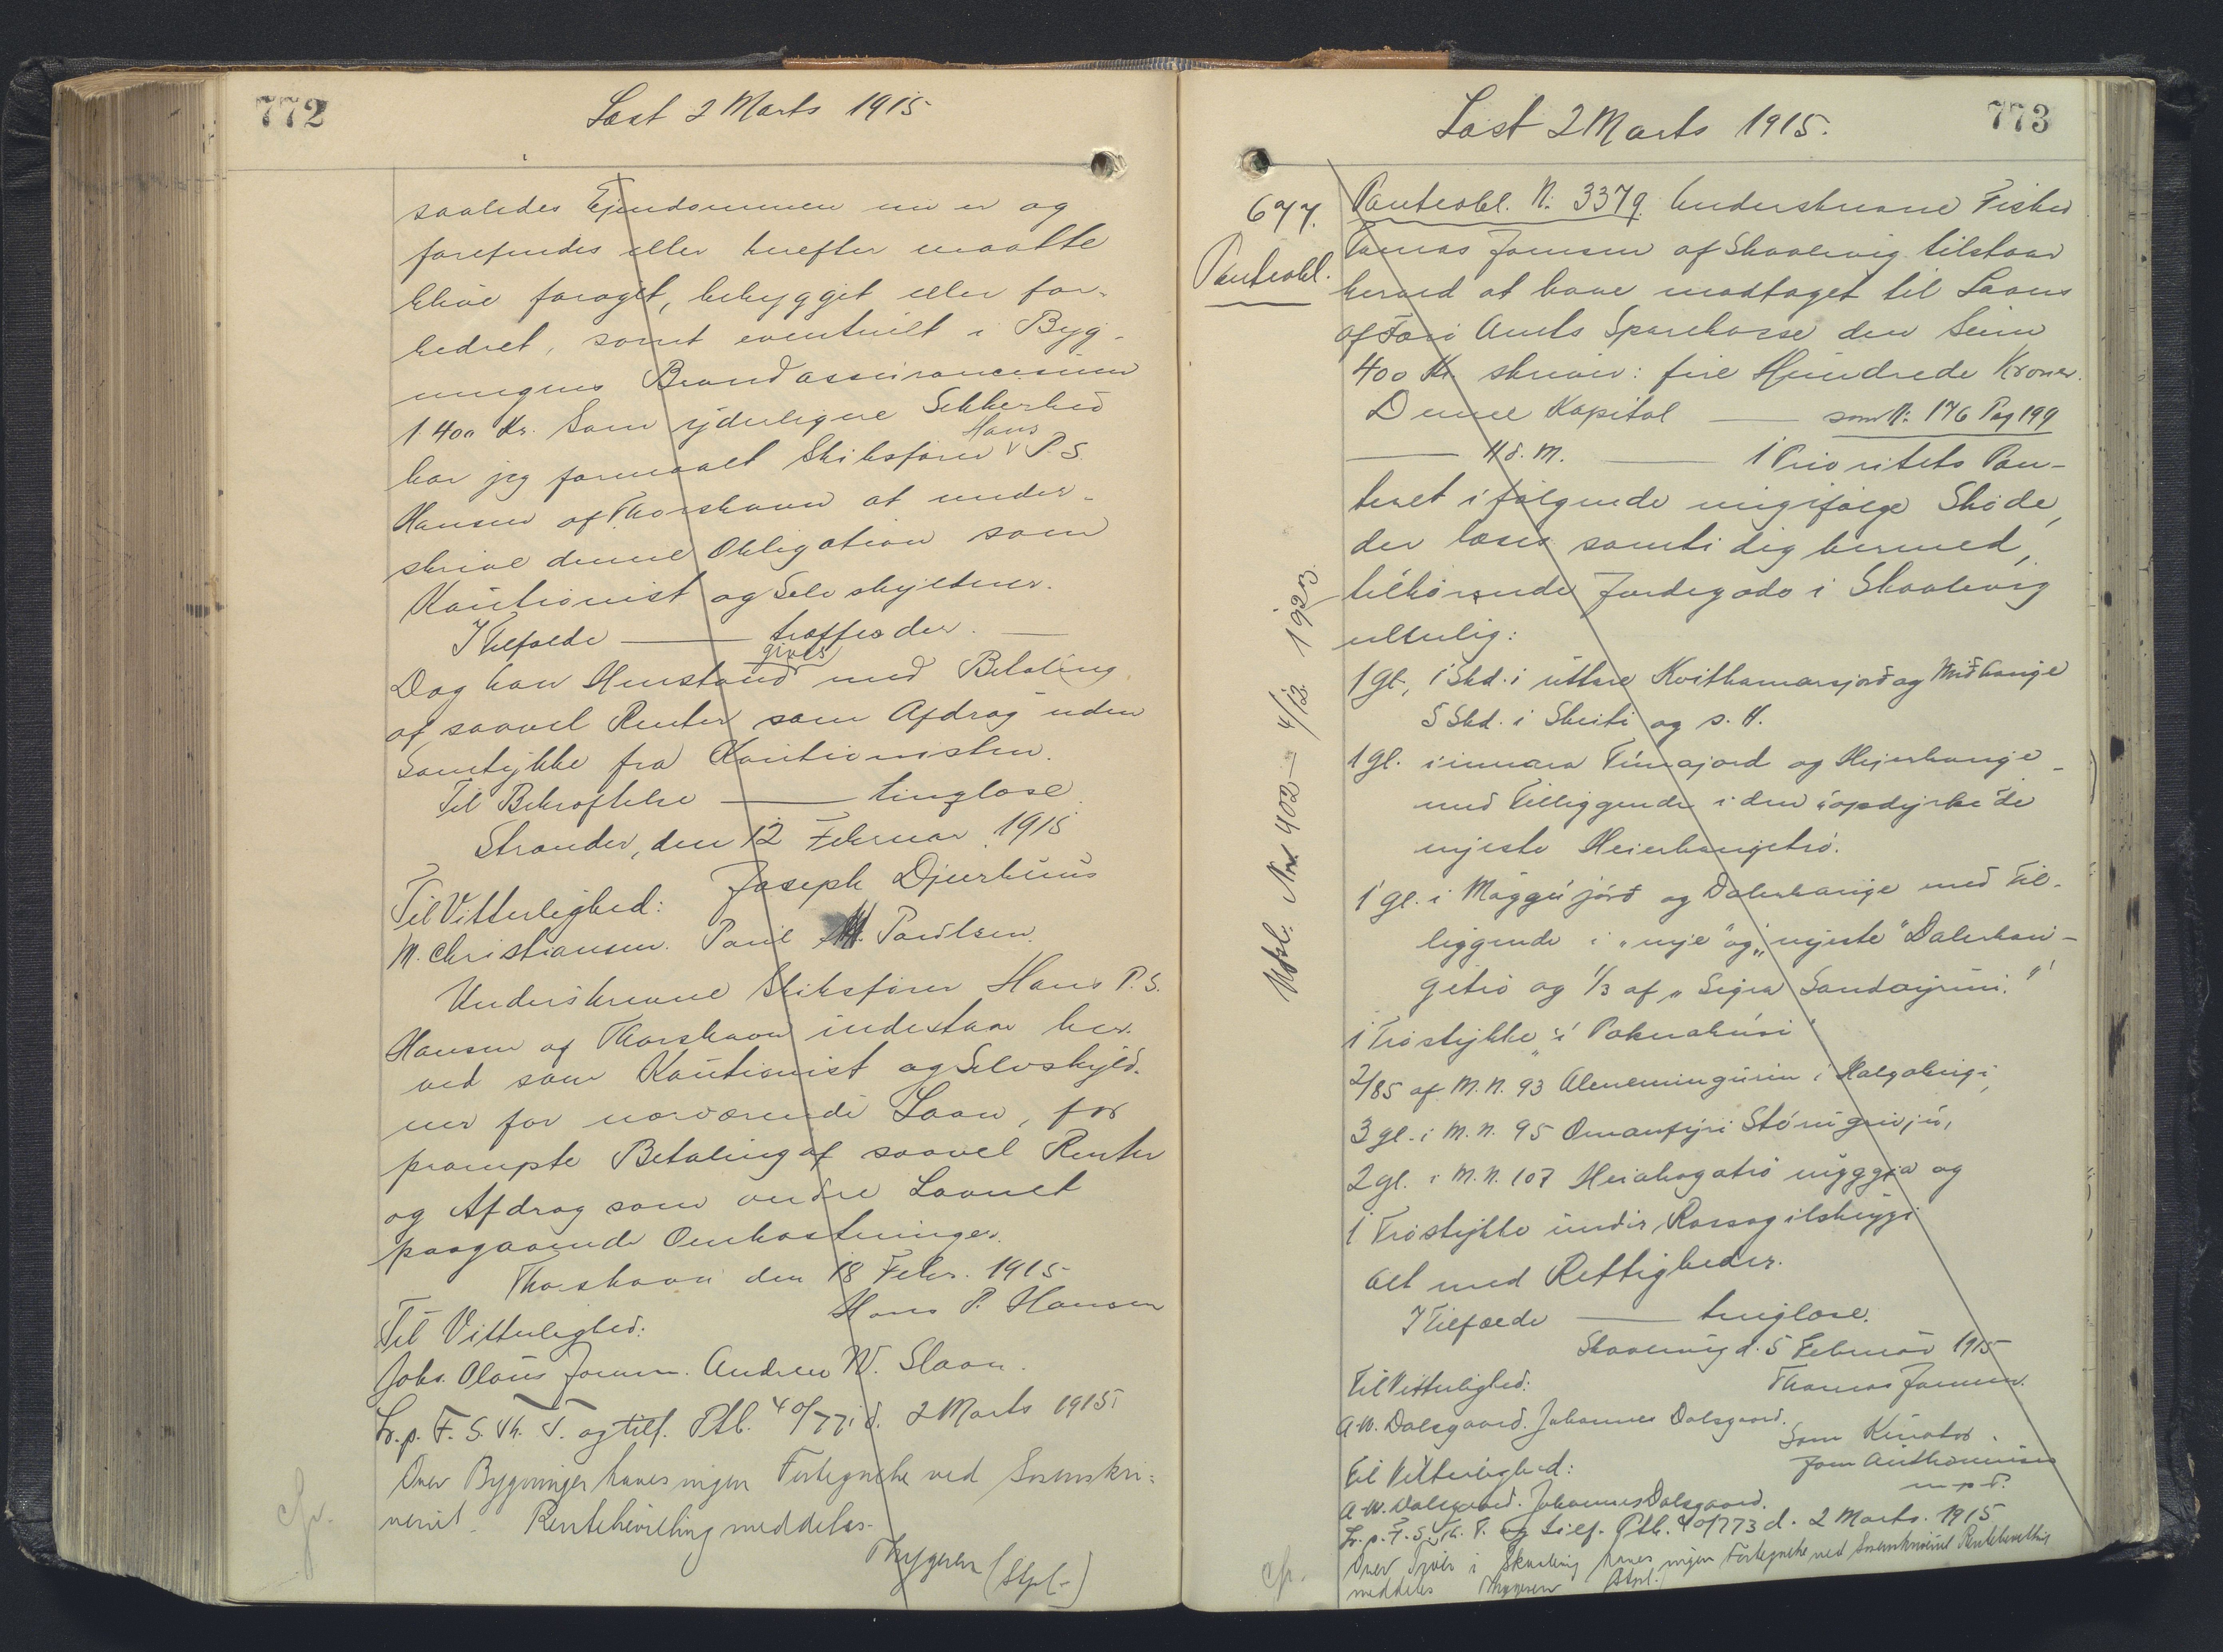 772
Læst 2 Marts 1915
saaledes Ejendommen nu er og
forefindes eller herefter maatte
blive forøget, bebygget eller for-
bedret, samt eventuelt i Byg-
ningens Brandassurancesum
1400 Kr. Som yderligere Sikkerhed
har jeg formaaet Skibsfører Hans P. S.
Hansen af Thorshavn at under-
skrive denne Obligation som
Kautionist og Selvskyldner.
I Tilfælde — træffes der. —
Dog kan Henstand gives med Betaling
af saavel Renter som Afdrag uden
Samtykke fra Kautionisten.
Til Bekræftelse — tinglæse.
Strander, den 12 Februar 1915
Joseph Djurhuus
Til Vitterlighed:
M. Christiansen. Poul M. Poulsen.
Underskrevne Skibsfører Hans P. S.
Hansen af Thorshavn indestaar her-
ved som Kautionist og Selvskyld-
ner for nærværende Laan, for
prompte Betaling af saavel Renter
og Afdrag som andre Laanet
paagaaende Omkostninger.
Thorshavn den 18 Febr. 1915
Hans P. Hansen
Til Vitterlighed:
Johs. Olaus Joensen. Andreas W. Slaan.
Lr. p. F. S. Th. T. og tilf. Ptb. 40/771 d. 2 Marts 1915
Over Bygninger haves ingen Fortegnelse ved Sorenskri-
veriet. Rentebevilling meddeles.
Thygesen (Stpl.)
cfr.
773
Læst 2 Marts 1915.
677.
Panteobl.
Panteobl. N. 3379. Underskrevne Fisker
Tomas Joensen af Skaalevig tilstaar
herved at have modtaget til Laans
af Færø Amts Sparekasse den Sum
400 Kr. skriver: fire Hundrede Kroner.
Denne Kapital — som N. 176 Pag 199
— H. d. M. — 1 Prioritets Pan-
teret i følgende mig ifølge Skøde,
der læses samtidig hermed,
tilhørende Jordegods i Skaalevig
nemlig:
1 Gl., 1 Skd. i uttara Kvithamarsjord og Midhauge
5 Skd. i Skeiti og s. H.
1 Gl. i innara Tinnajord og Hejerhauge
med Tilliggende i den "opdyrkede"
nyeste Heierhaugetrø.
1 gl. i Møggujørd og Dalerhauge med Til-
liggende i "nye" og "nyeste" Dalerhau-
getrø og 1/3 af "Signa Sandoyruni."
1 Trøstykke "i Paknahusi"
2/85 af M. N. 93
3 gl. i M. N. 95 Omanfyri Stórugrivju,
2 gl. i M. N. 107 Heiahagatrø nýggja og
1 Trøstykke undir Rossagilsbrýggi
Alt med Rettigheder.
I Tilfælde — tinglæse.
Skaalevig d. 5 Februar 1915
Til Vitterlighed:
Thomas Joensen.
A. W. Dalsgaard. Johannes Dalsgaard.
Som Kurator
Joen Anthoniussen
m. p. P.
Til Vitterlighed:
A. W. Dalsgaard. Johannes Dalsgaard.
Lr. p. F. S. Th. T. og tilf. Ptb. 40/773 d. 2 Marts 1915
Over i Skaalevig haves ingen Fortegnelse ved Sorenskriveriet Rentebevilling
meddeles Thygesen (Stpl.)
cfr.
Udsl. Nr 402 — 4/12 1923